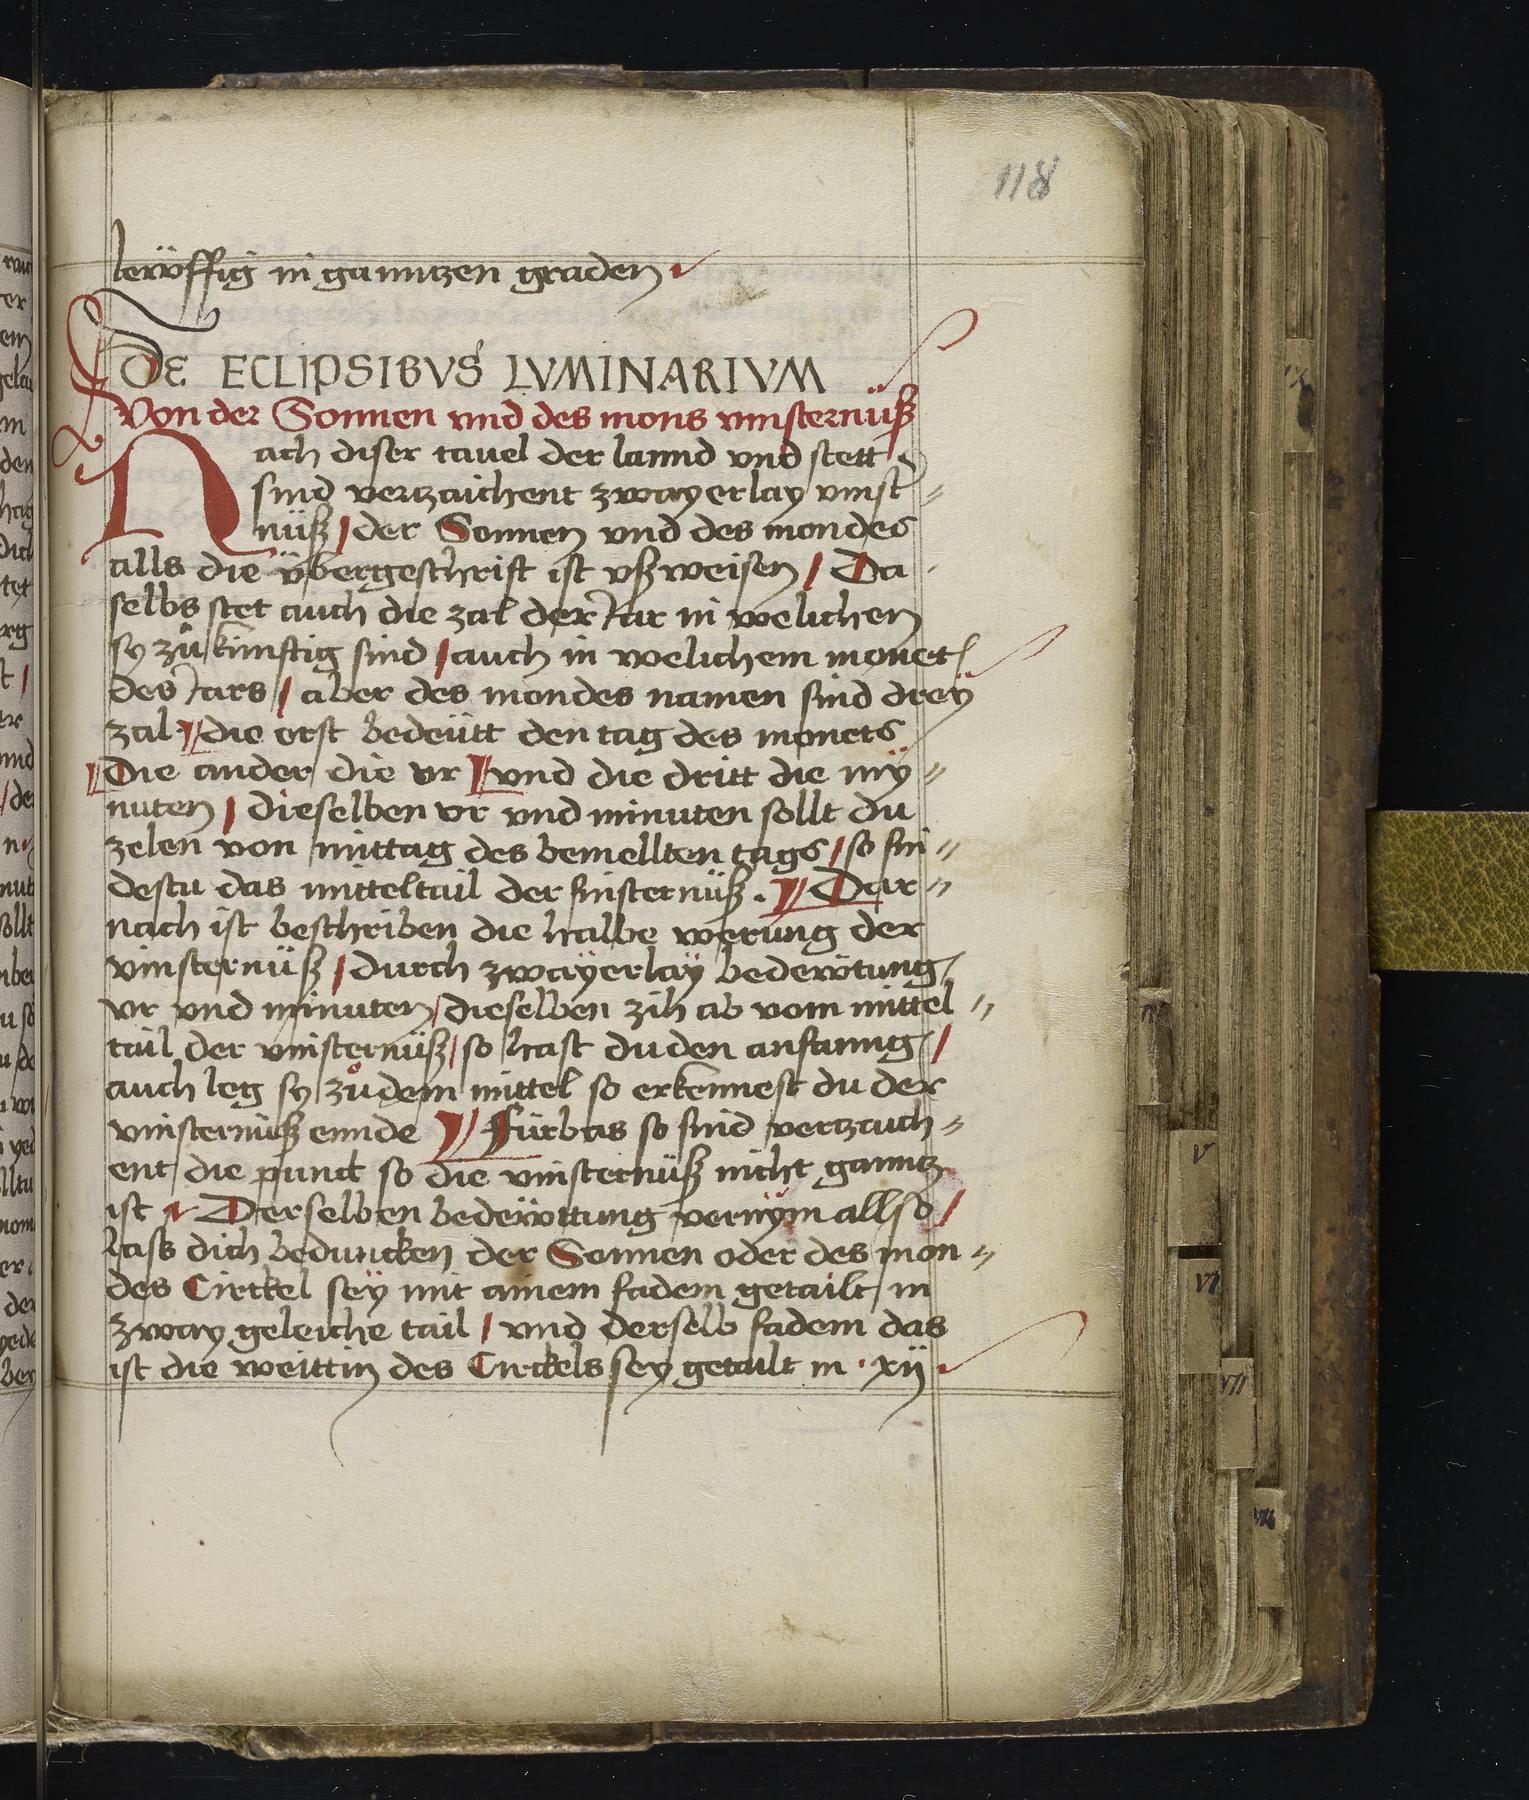 118
lewffig in ganntzen graden
DE ECLIPSIBVS LVMINARIVM
Von der Sonnen vnd des mons vinsternüß
Nach diser tauel der lannd vnd stett
sind vertzaichent zwayerlay vinst=
nüß / der Sonnen vnd des mondes
alls die übergeschrift ist vßweisen / Da
selbs stet auch die zal der Jar in welichen
sy zůkünftig sind / auch in welichem monet
des Jars / aber des mondes namen sind dreÿ
zal die erst bedeütt den tag des monets
Die ander die vr vnd die dritt die mÿ=
nuten / dieselben vr vnd minuten sollt du
zelen von mittag des bemellten tags / so fin=
destu das mitteltail der finsternüß. Dar=
nach ist beschriben die halbe werung der
vinsternüß / durch zwaÿerlaÿ bedewtung
vr vnd minuten / dieselben zih ab vom mittel=
tail der vinsternüß / so hast du den anfanng /
auch leg sy zů dem mittel so erkennest du der
vinsternüß ennde Fürbas so sind vertzaich=
ent die punct so die vinsternüß nicht ganntz
ist Derselben bedewttung vernÿm allso /
lass dich beduncken der Sonnen oder des mon=
des Circkel seÿ mit ainem fadem getailt in
zway geleiche tail / vnd derselb fadem das
ist die weittin des Circkels sey getailt in · xij
IX
IV
V
VI
VII
VIII